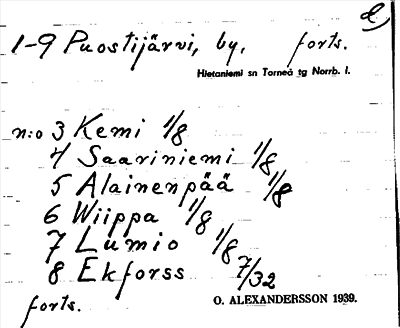 1-9 Puostijärvi, by, forts.
Hietaniemi sn Torneå tg Norrb. l.
n:o 3 Kemi 1/8
4 Saariniemi 1/8
5 Alainenpää 1/8
6 Wiippa 1/8
7 Lumio 1/8
8 Ekforss 7/32
forts.
O. ALEXANDERSSON 1939.